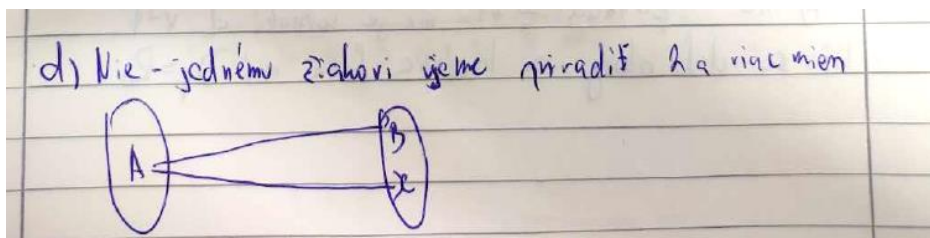 d) Nie - jednému žiakovi vieme priradiť 2 a viac mien
A
B
x